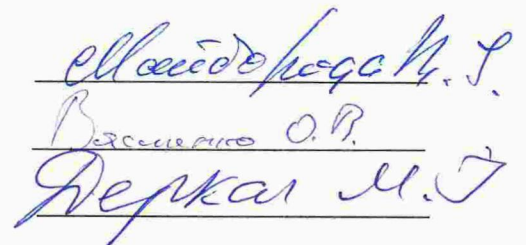 Майборода М. Г.
Василенко О. В.
Деркач М. І